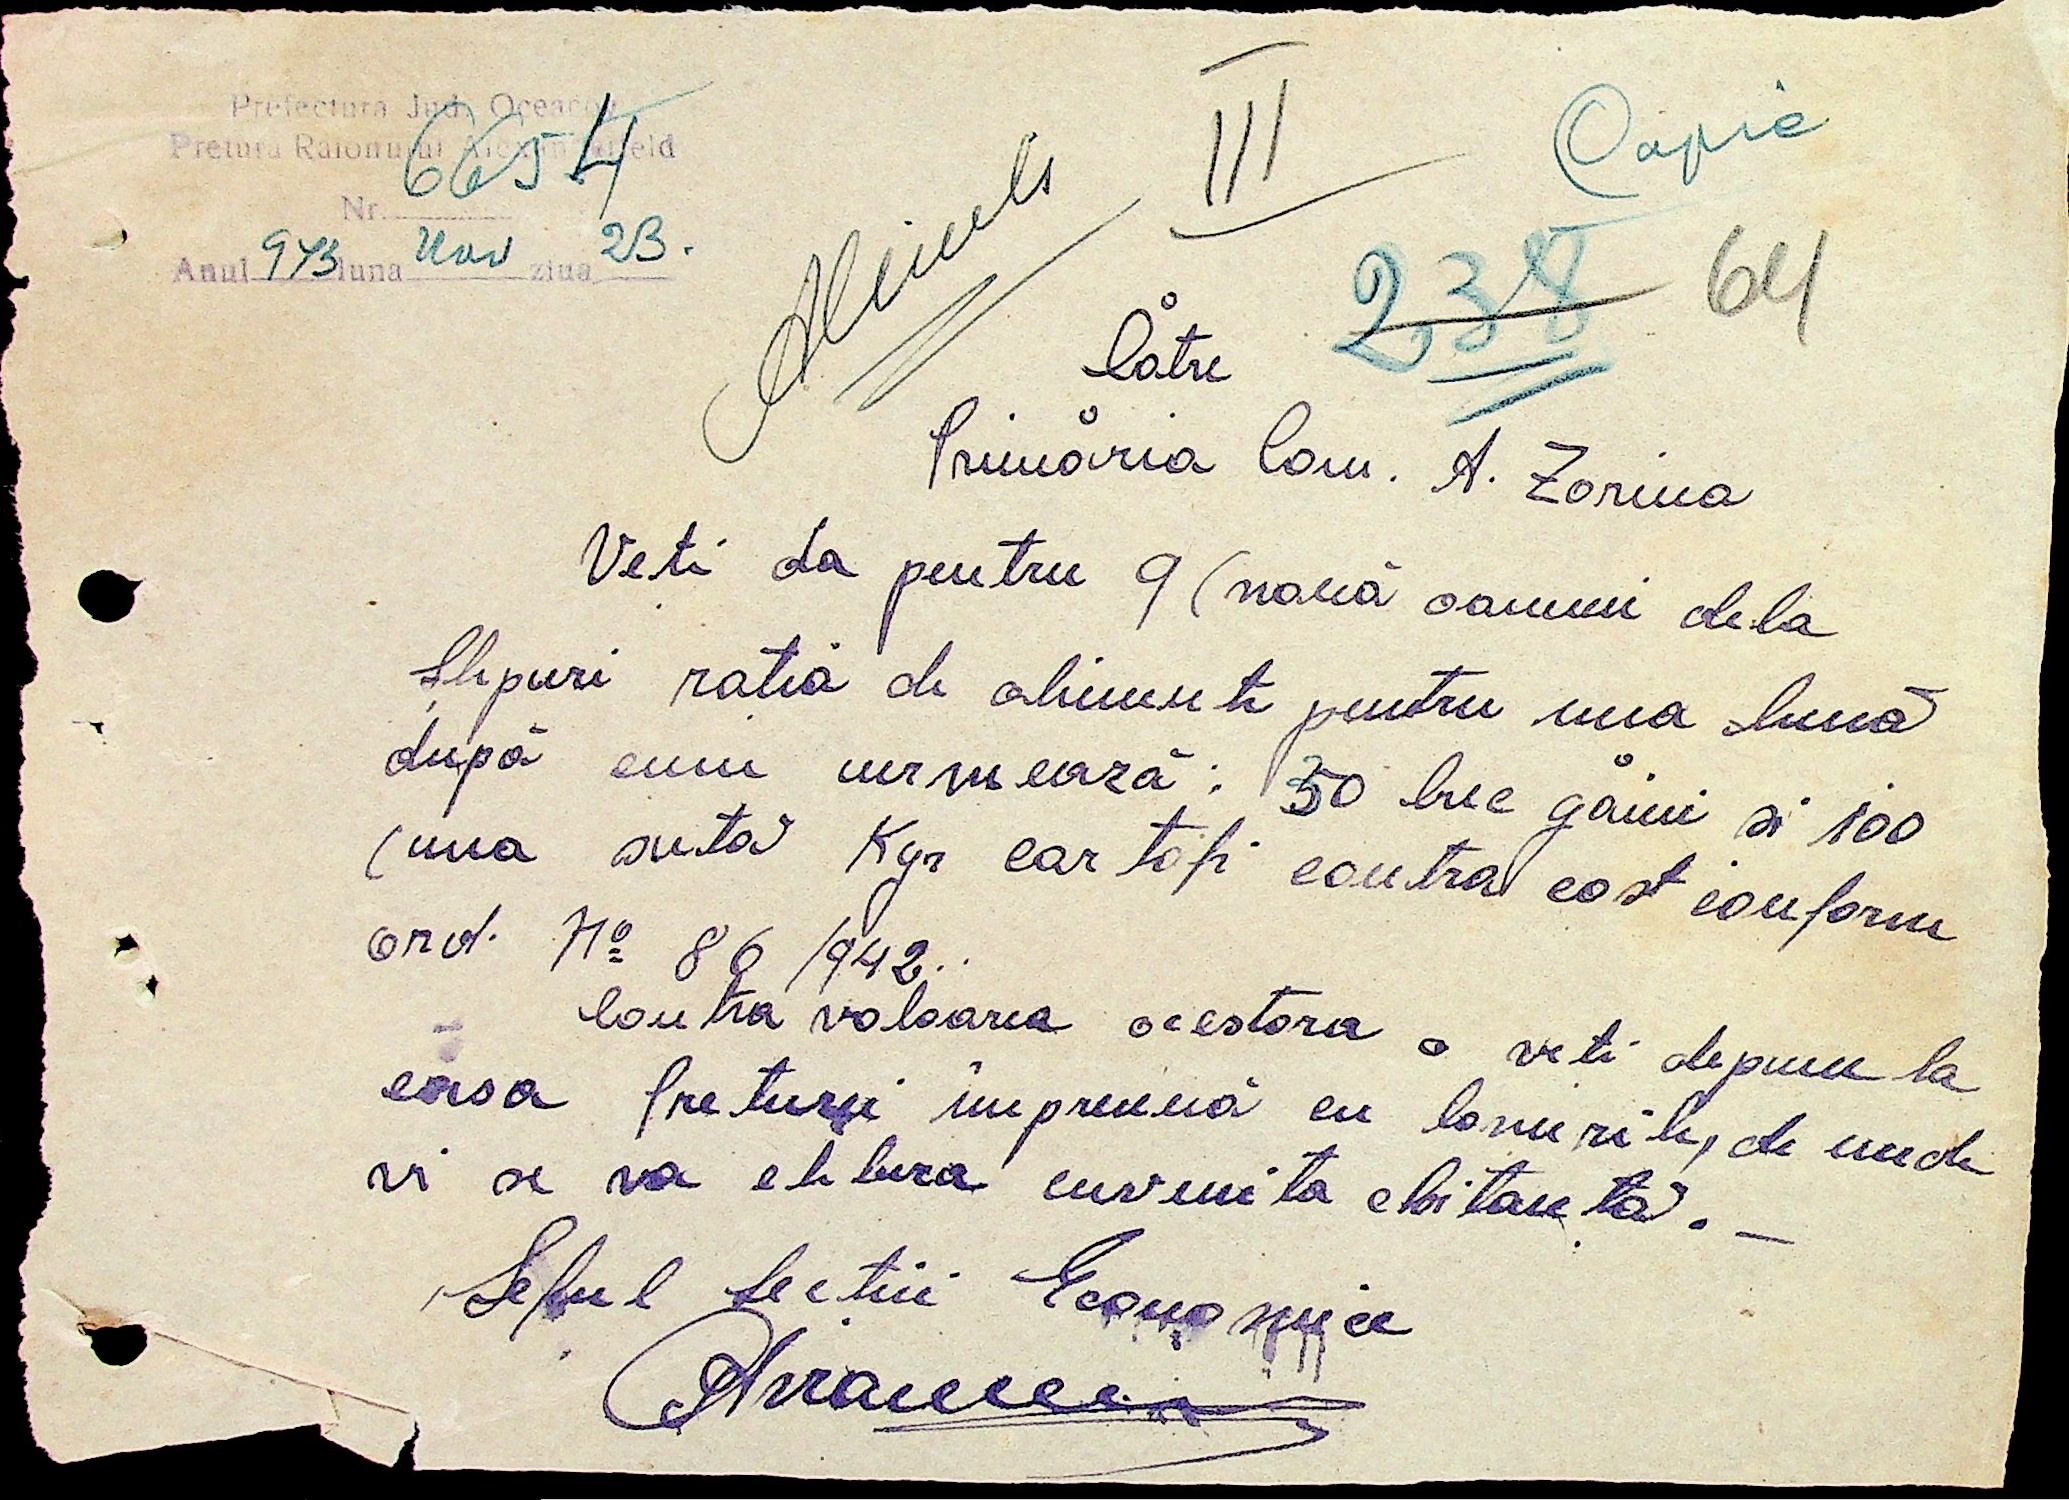 Prefectura Jud. Oceacov
Pretura Raionului Alexanderfeld
Nr. 6654
Anul 943 luna Nov ziua 23.
III
Copie
Aliments
238 64
Cåtre
Primåria Com. A. Zorina
Veti da pentru 9 (nouă oameni dela
Șlepuri ratiă de alimente pentru una lună
după cum urmează: 30 buc gåini si 100
(una sută Kgr cartofi contra cost conform
ord. Nº 86/942..
Contra valoarea acestora o veti depune la
casa Preturii împreună cu banurile, de unde
vi se va elibera cuvenita chitanță. –
Șeful Sectiei Economice